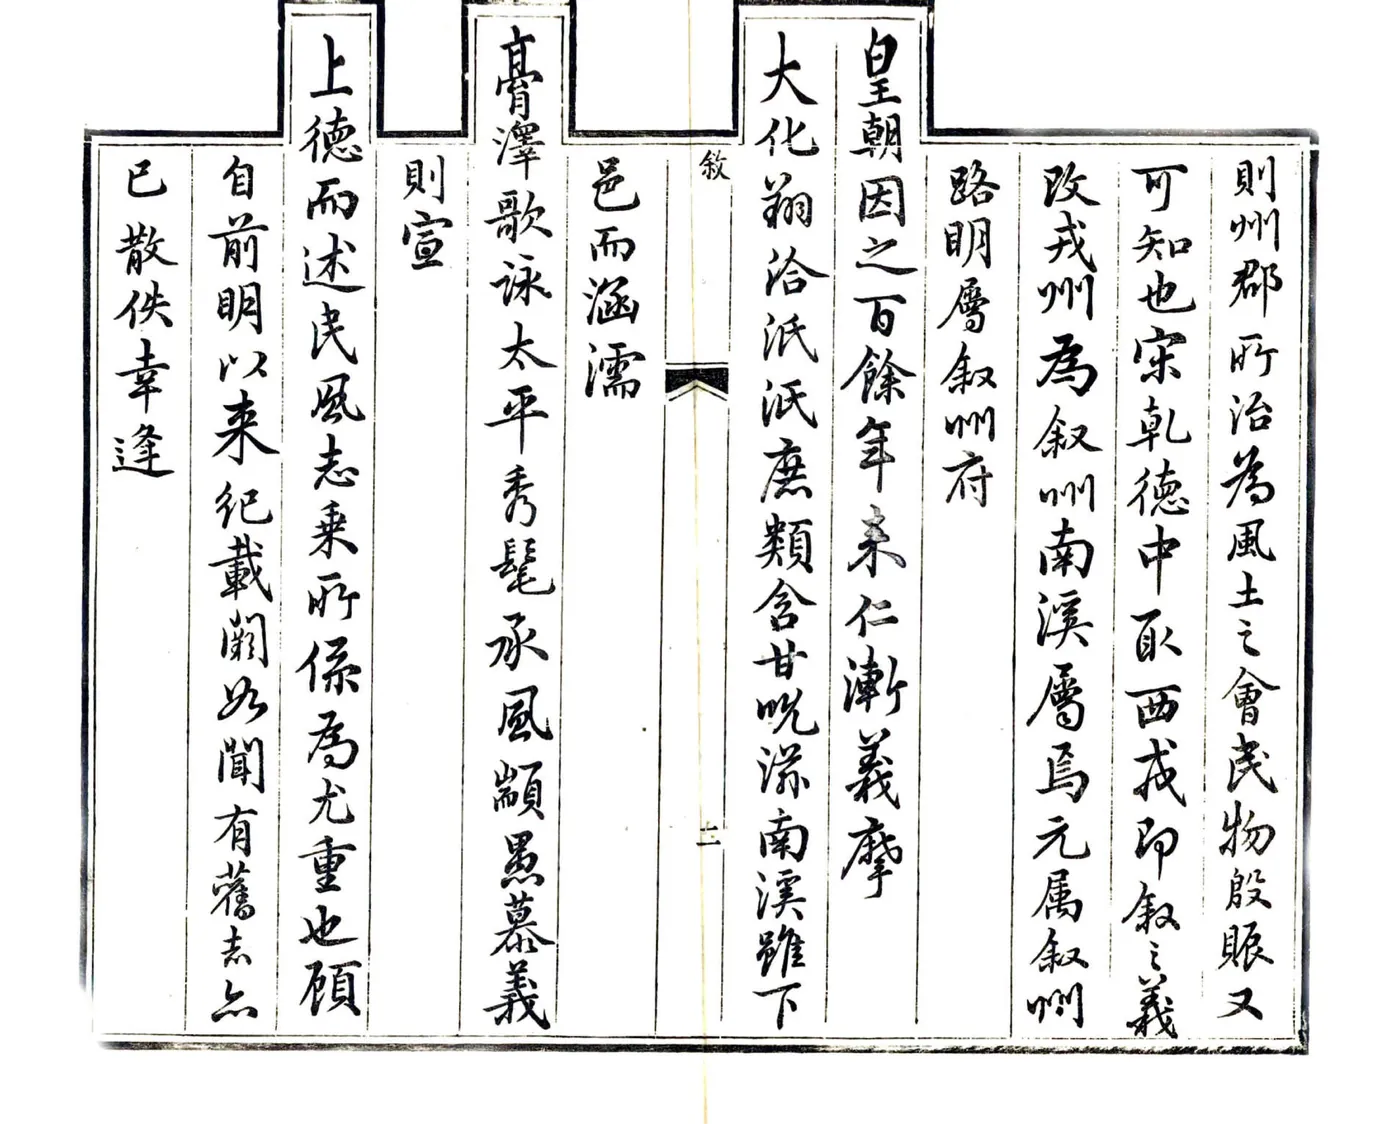 則州郡所治為風土之會民物殷賑又
可知也宋乾德中取西戎即敘之義
改戎州為敘州南溪屬焉元属敘州
路明屬敘州府
皇朝因之百餘年來仁漸義摩
大化翔洽泯泯庶類含甘吮滋南溪雖下
敘
二
邑而涵濡
膏澤歌詠太平秀髦承風顓愚慕義
則宣
上德而述民風志乗所係為尤重也顧
自前明以来紀載闕如聞有舊志亦
已散佚幸逢